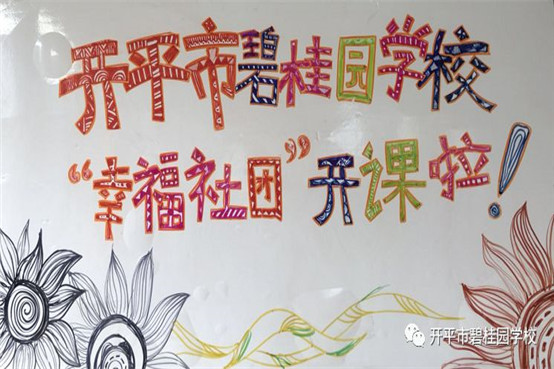 开平市碧桂园学校
“幸福社团”开课啦！
开平市碧桂园学校